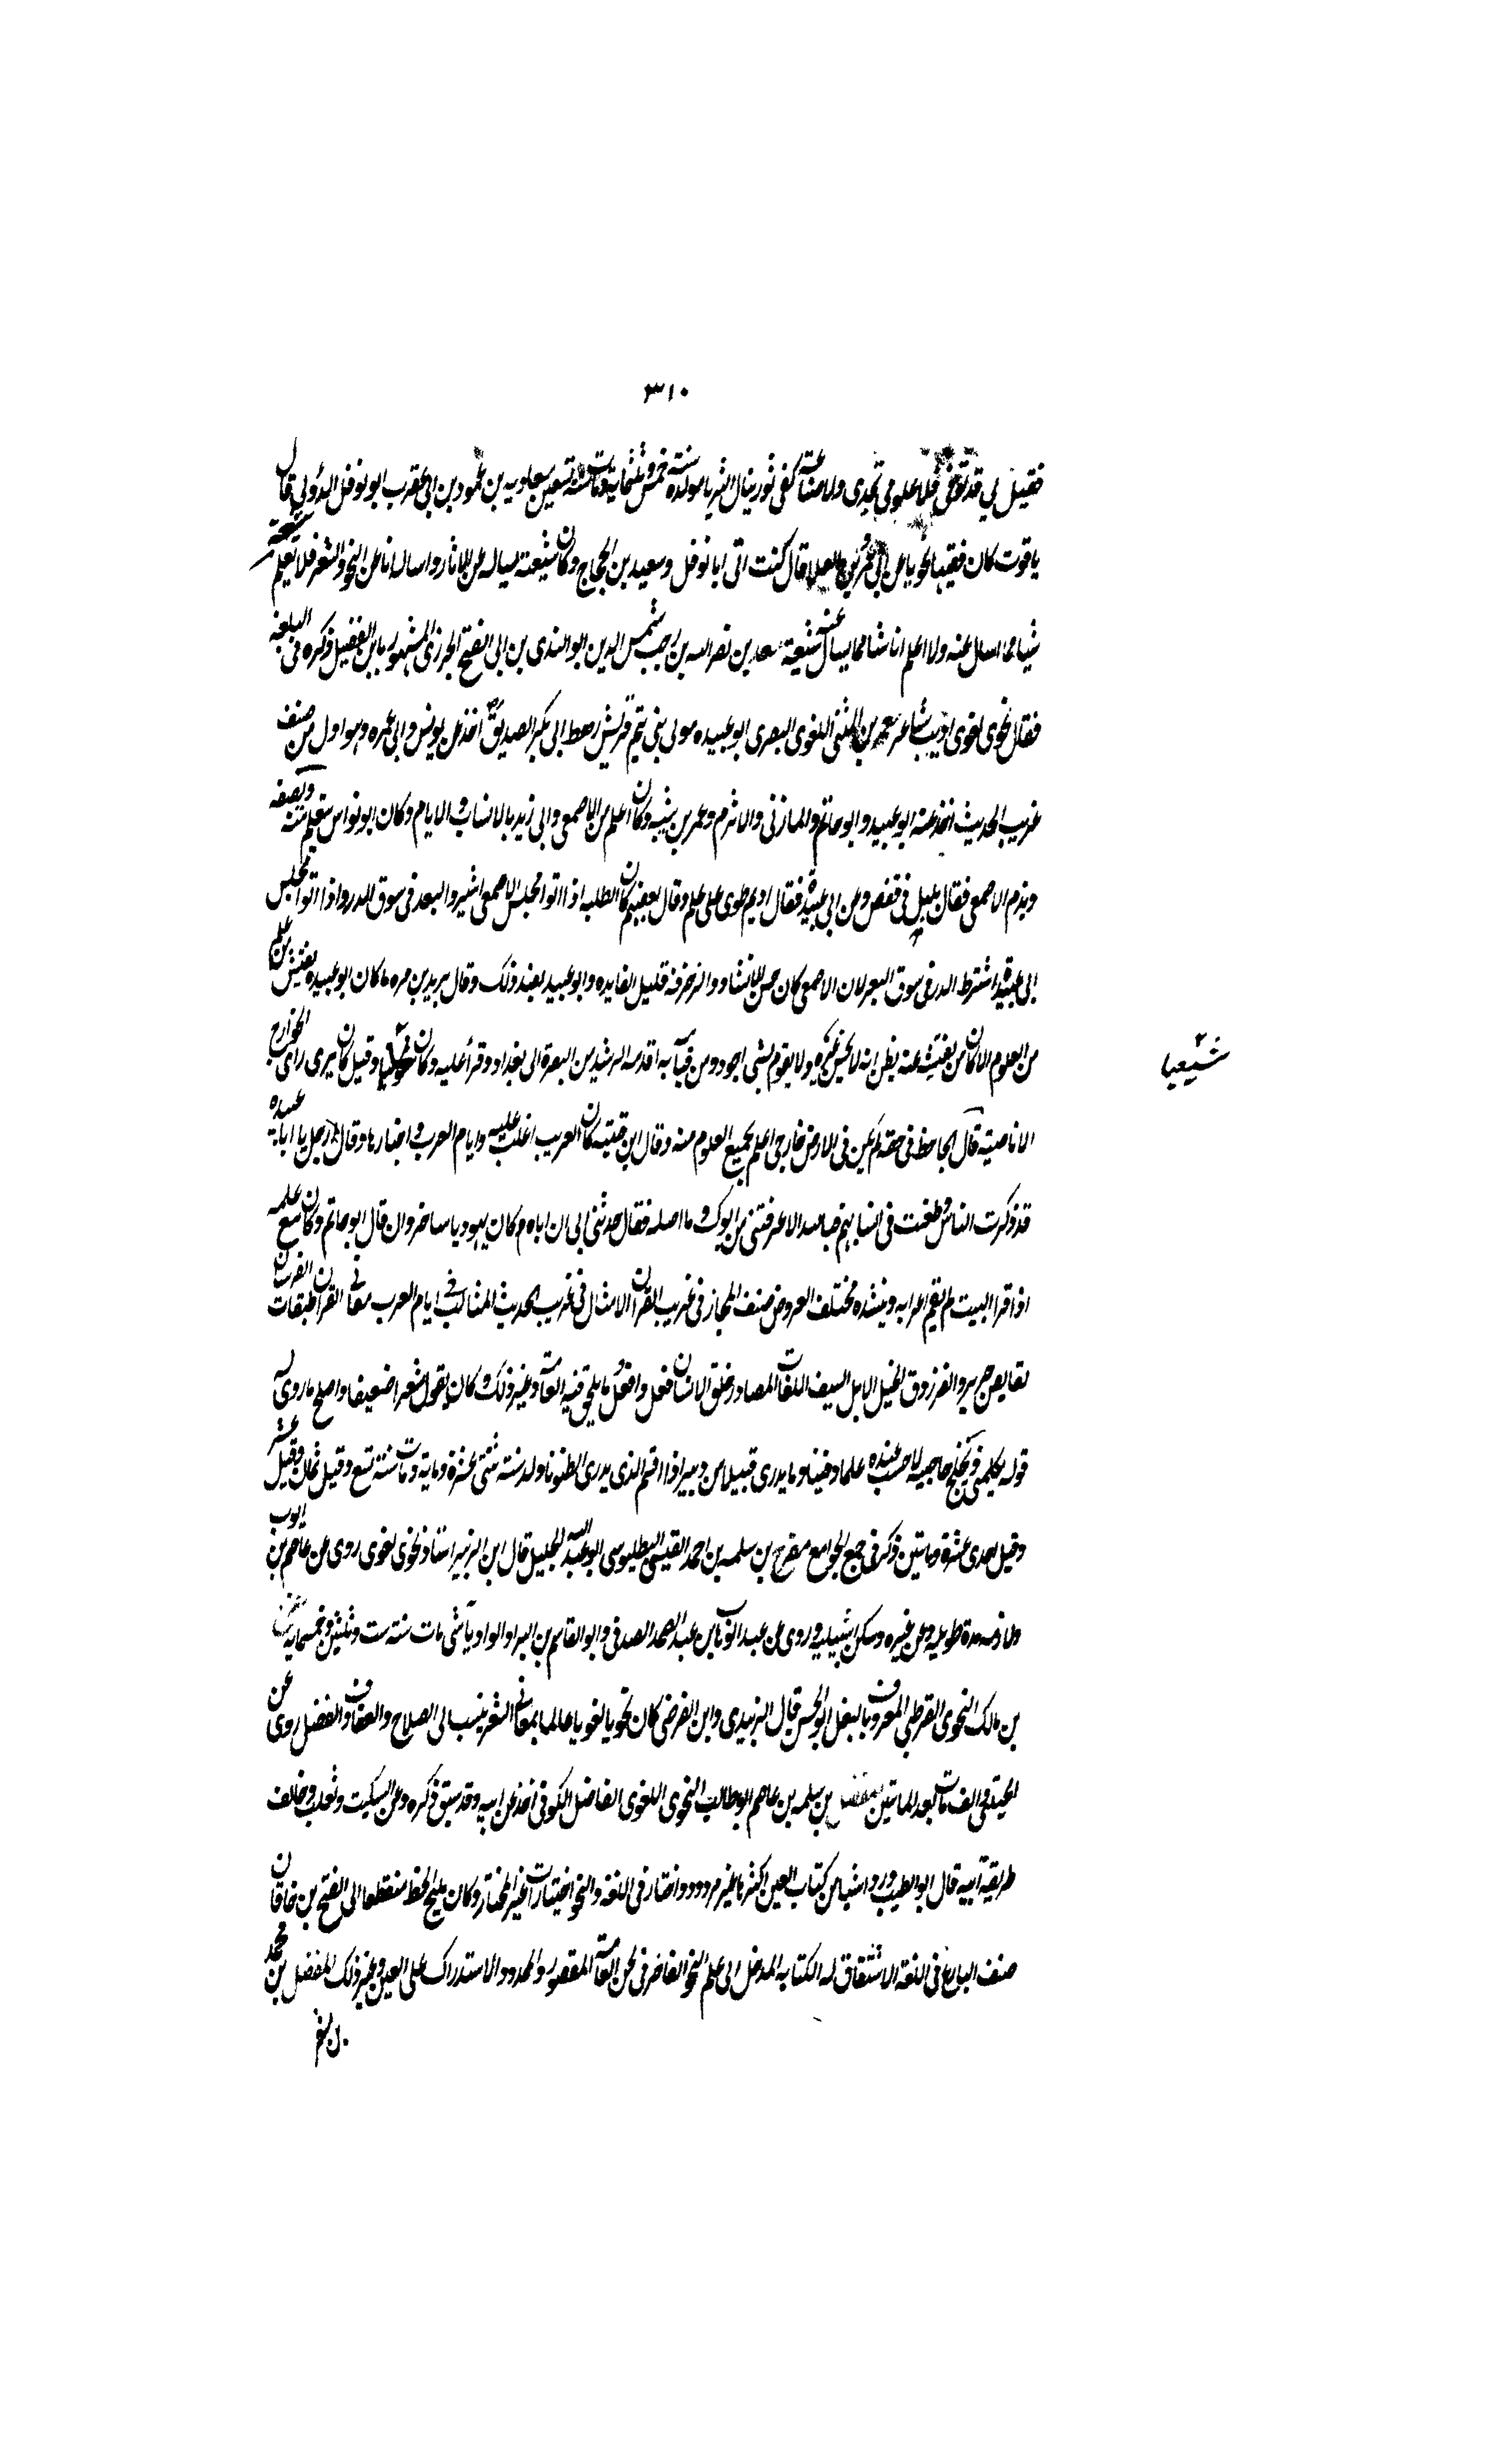 ٣١٠
فقيل لي قد توفى فلا علومي تجدى ولا صناعة كفى ثور ينال الثريا مولده سنة خمس وثلثماية ومات سنة تسعين معاويه بن عمرو بن ابي عقرب ابو نوفل الدؤلي قال
ياقوت كان فقيها نحويا عن ابي عمرو بن العلا قال كنت اتى ابا نوفل وسعيد بن الحجاج وكان شعبة يساله عن الاثار واساله انا عن النحو والشعر فلا يعلم شعبة
شيا مما اسال عنه ولا اعلم انا شيا مما يسال عنه شعبة معد بن نصر الله بن رجب شمس الدين ابو الندى بن ابى الفتح الجزرى المشهور بابن الصيقل ذكره فى البلغه
فقال نحوى لغوى اديب شاعر معمر بن المثنى اللغوى البصرى ابو عبيده مولى بنى تيم قريش رهط ابى بكر الصديق اخذ عن يونس وابى عمرو وهو اول من صنف
غريب الحديث اخذ عنه ابو عبيد وابو حاتم والمازنى والاثرم وعمر بن شبه وكان اعلم من الاصمعى وابى زيد بالانساب والايام وكان ابو نواس يتعلم منه ويصفه
ويذم الاصمعى فقال بلبل فى قفص وعن ابى عبيدة فقال اديم طوى على علم وقال بعضهم كان الطلبه اذا اتوا مجلس الاصمعى اشتروا البعر فى سوق الدر واذا اتوا مجلس
ابى عبيدة اشتروا الدر فى سوق البعر لان الاصمعى كان حسن الانشاد والزخرفة قليل الفايده وابو عبيد بضد ذلك وقال يزيد بن مره ما كان ابو عبيده يفتش عن علم
من العلوم الا كان من يفتشه عنه يظن انه لا يحسن غيره ولا يقوم بشى اجود من قيامه به اقدمه الرشيد من البصرة الى بغداد وقرأ عليه وكان وقيل كان يرى راى الخوارج
شيعيا
الاباضيه قال الجاحظ فى حقه لم يكن فى الارض خارجى اعلم بجميع العلوم منه وقال ابن قتيبه كان الغريب اغلب عليه وايام العرب واخبارها وقال له رجل يا ابا عبيده
قد ذكرت الناس وطعنت فى انسابهم فبالله الا عرفتنى من ابوك وما اصله فقال حدثنى ابى ان اباه كان يهوديا باجروان قال ابو حاتم وكان مع علمه
اذا قرا البيت لم يقم اعرابه وينشده مختلف العروض صنف المجاز فى غريب القران الامثال فى غريب الحديث المثالب فى ايام العرب معانى القران طبقات الفرسان
نقايض جرير والفرزدق الخيل الابل السيف اللغات المصادر خلق الانسان فعل وافعل ما يلحن فيه العامة وغير ذلك وكان يقول شعرا ضعيفا واصلح ما روى له
قوله يكلمنى ويخلج حاجبيه لاحسب عنده علما دفينا وما يدرى قبيلا من دبير اذا اقسم الذى يدرى الظنونا ولد سنة ثنتى عشرة وماية ومات سنة تسع وقيل ثمان وقيل عشر
وقيل احدى عشرة ومائتين ذكر فى جمع الجوامع مفرج بن سلمه بن احمد القيسى البطليوسى ابو عبد الله الجليل قال ابن الزبير استاذ نحوى لغوى روى عن عاصم بن ايوب
ولازمه مدة طويله وعن غيره وسكن اشبيليه وروى عن عبد الوهاب بن عبد الصمد الصدفى وابو القاسم بن البراد الوادياشى مات سنة ست وثلثين وخمسمايه مفرج
بن مالك النحوى القرطبى المعروف بالبغل ابو الحسن قال الزبيدى وابن الفرضى كان نحويا لغويا عالما بمعانى الشعر ينسب الى الصلاح والعفاف والفضل روى عن
الخشنى فى الف مات بعد المائتين المفضل بن سلمه بن عاصم ابو طالب النحوى اللغوى الفاضل الكوفى اخذ عن ابيه وقد سبق ذكره وعن السكيت وثعلب وخالف
طريقة ابيه قال ابو الطيب ورد اشيا من كتاب العين اكثرها غير مردود واختار فى اللغة والنحو اختيارات غيرها المختار وكان مليح الخط منقطعا الى الفتح بن خاقان
صنف البارع فى اللغة الاشتقاق له الكتابه المدخل الى علم النحو الفاخر فى لحن العامة المقصور والممدود الاستدراك على العين وغير ذلك المفضل بن محمد